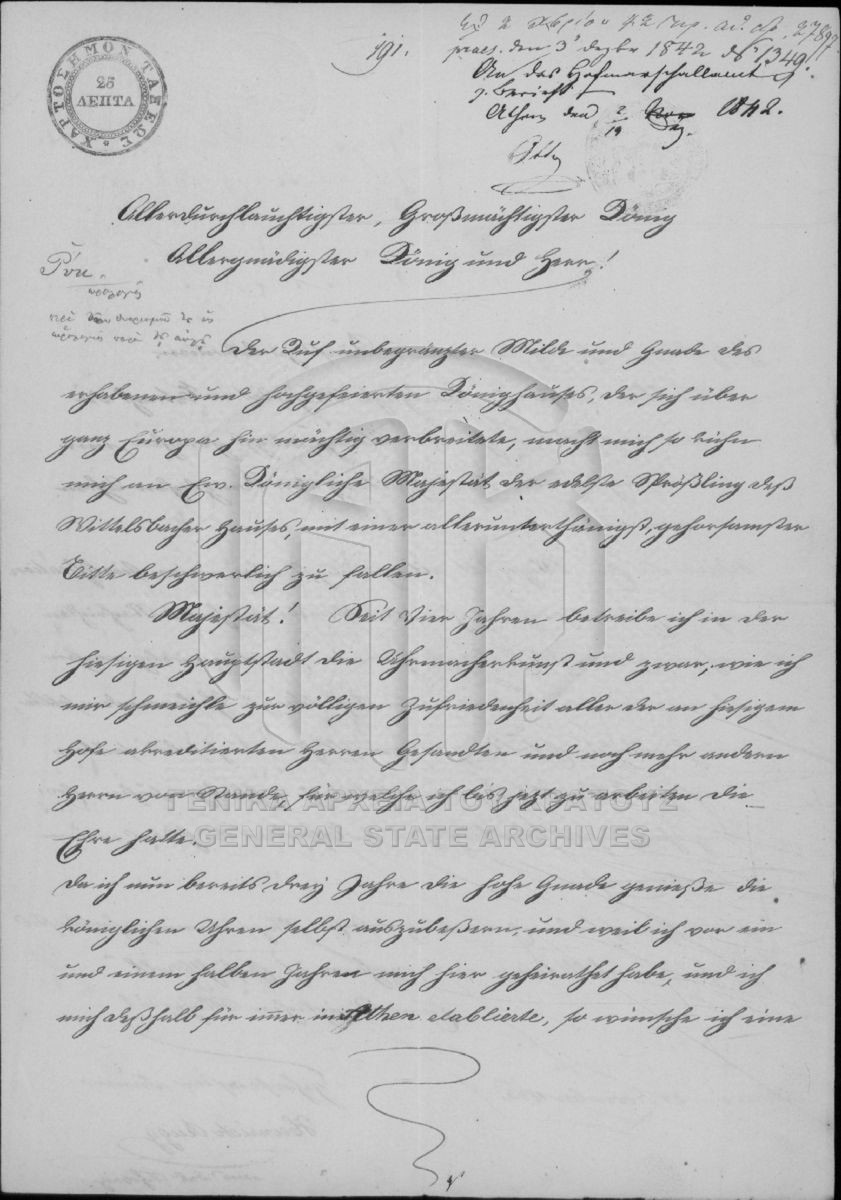 ΧΑΡΤΟΣΗΜΟΝ ΤΑΞΕΩΣ
25
ΛΕΠΤΑ
191.
praes. den 3 dezbr 1842 1349.
An das Hofmarschallamt
z. Bericht
Athen den 2/14 Nov Dez. 1842.
Otto
Allerdurchlauchtigster, Großmächtigster König
Allergnädigster König und Herr!
Der Ruf unbegränzter Milde und Gnade des
erhabenen und hochgefeierten Könighauses, der sich über
ganz Europa hin mächtig verbreitete, macht mich so kühn
mich an Ew. Königliche Majestät der edelste Sprößling deß
Wittelsbacher Hauses, mit einer allerunterthänigst, gehorsamster
Bitte beschwerlich zu fallen.
Majestät! Seit Vier Jahren betreibe ich in der
hiesigen Hauptstadt die Uhrmacherkunst und zwar, wie ich
mir schmeichle zur völligen Zufriedenheit aller der an hiesigem
Hofe akreditierten Herren Gesandten und noch mehr andern
Herrn von Stande, für welche ich bis jetzt zu arbeiten die
Ehre hatte.
Da ich nun bereits drey Jahre die hohe Gnade genieße die
königlichen Uhren selbst auszubeßern, und weil ich vor ein
und einem halben Jahren mich hier geheirathet habe, und ich
mich deßhalb für immer in Athen etablierte, so wünsche ich eine
ΓΕΝΙΚΑ ΑΡΧΕΙΑ ΤΟΥ ΚΡΑΤΟΥΣ
GENERAL STATE ARCHIVES